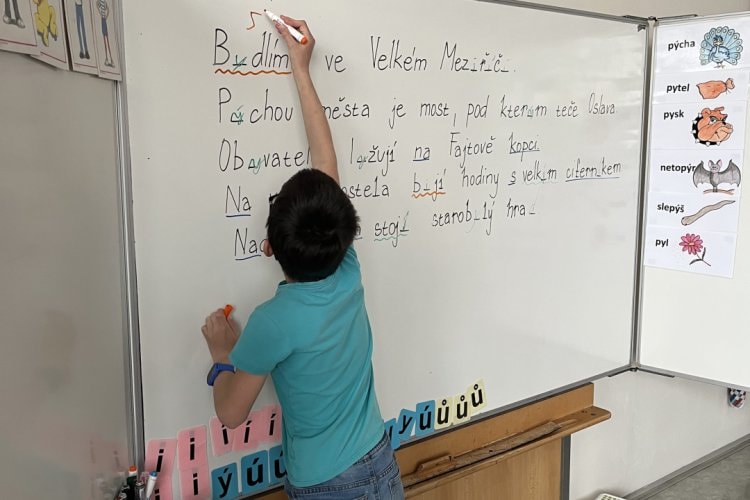 5.
Bydlím ve Velkém Meziříčí.
Pýchou města je most, pod kterým teče Oslava.
Obyvatel lyžují na Fajtově kopci.
Na ostela bijí hodiny s velkým ciferníkem
Nad stojí starobylý hra
pýcha
pytel
pysk
netopýr
slepýš
pyl
i i í í y ú ů ů ů
i i ý ú ú